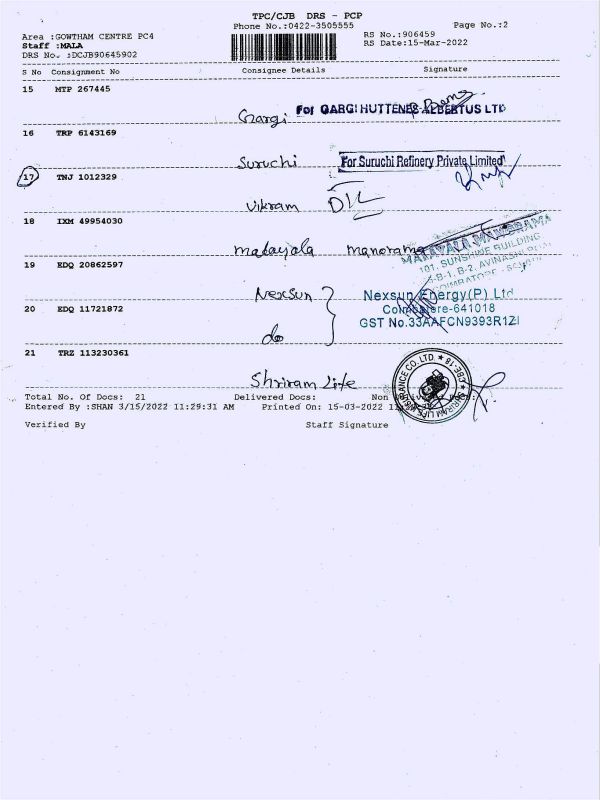 TPC/CJB DRS - PCP
Phone No.:0422-3505555
Page No.:2
Area :GOWTHAM CENTRE PC4
RS No.:906459
Staff :MALA
RS Date:15-Mar-2022
DRS No. :DCJB90645902
S No Consignment No Consignee Details Signature
15 MTP 267445
Gargi For GARGI HUTTENES ALBERTUS LTD
16 TRP 6143169
Suruchi For Suruchi Refinery Private Limited
17 TNJ 1012329
Vikram
18 IXM 49954030
malayala manorama MALAYALA MANORAMA
101, SUNSHINE BUILDING
19 EDQ 20862597
Nexsun Nexsun Energy(P) Ltd
20 EDQ 11721872 Coimbatore-641018
GST No.33AAFCN9393R1ZI
do
21 TRZ 113230361
Shriram Life
Total No. Of Docs: 21 Delivered Docs: Non
Entered By :SHAN 3/15/2022 11:29:31 AM Printed On: 15-03-2022
Verified By Staff Signature